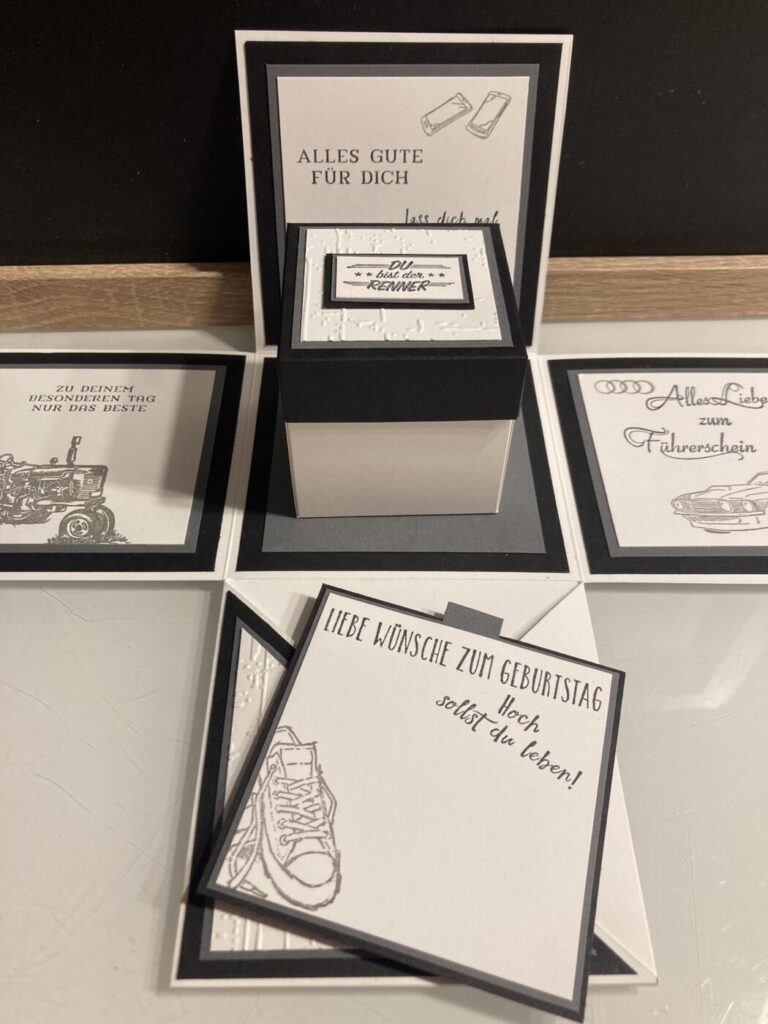 ALLES GUTE
FÜR DICH
lass dich mal
DU
bist der
RENNER
ZU DEINEM
BESONDEREN TAG
NUR DAS BESTE
Alles Liebe
zum
Führerschein
LIEBE WÜNSCHE ZUM GEBURTSTAG
Hoch
sollst du leben!